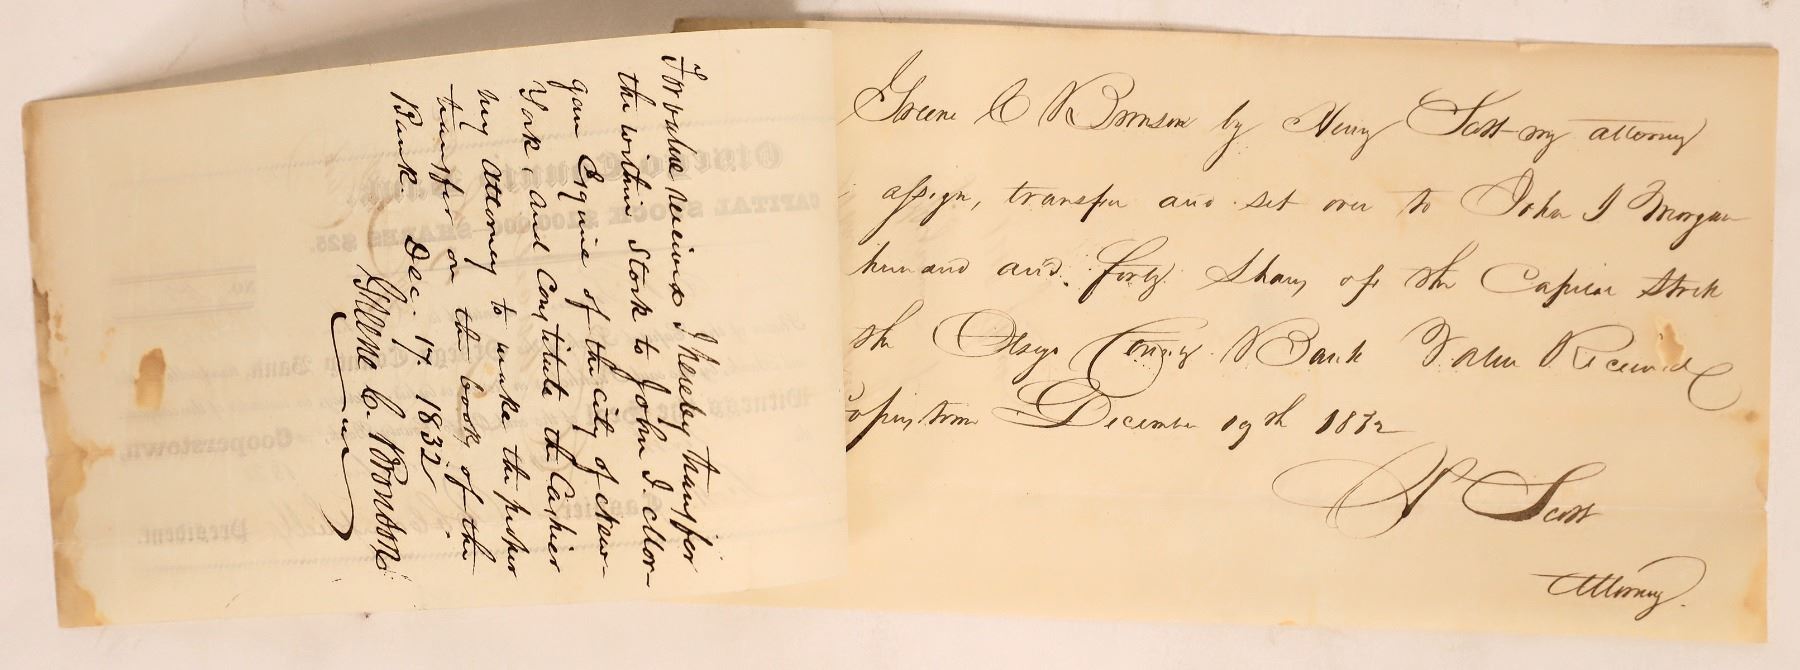 For value received I hereby transfer
the within Stock to John I. Mor-
gan Esquire of the city of New-
York, and Constitute the Cashier
my Attorney to make the proper
transfer on the book of the
Bank. Dec. 17. 1832.
Greene C. Bronson
Greene C Bronson by Henry Scott my attorney
assign, transfer and set over to John I Morgan
hundred and forty Shares of the Capital Stock
the Otsego County Bank Value Received
December 19th 1832
H Scott
Attorney.
Otsego County Bank.
CAPITAL STOCK $100,000—SHARES $25.
Cooperstown,
President.